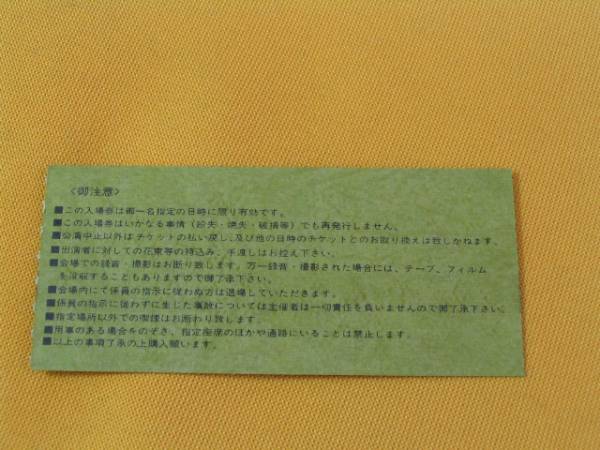 〈御注意〉
■この入場券は御一名指定の日時に限り有効です。
■この入場券はいかなる事情（紛失・焼失・破損等）でも再発行しません。
■公演中止以外はチケットの払い戻し､及び他の日時のチケットとのお取り換えは致しかねます。
■出演者に対しての花束等の持込み、手渡しはお控え下さい。
■会場での録音・撮影はお断り致します。万一録音・撮影された場合には、テープ、フィルム
を没収することもありますので御了承下さい。
■会場内にて係員の指示に従わぬ方は退場していただきます。
■係員の指示に従わずに生じた事故については主催者は一切責任を負いませんので御了承下さい。
■指定場所以外での喫煙はお断わり致します。
■用事のある場合をのぞき、指定座席のほかや通路にいることは禁止します。
■以上の事項了承の上購入願います。